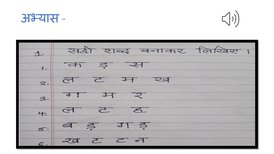 अभ्यास -
1. सही शब्द बनाकर लिखिए ।
1. क ड़ स
2. ल ट म ख
3. ग म र
4. ल ट ह
5. ब ड़ ग ड़
6. ख ट ट न